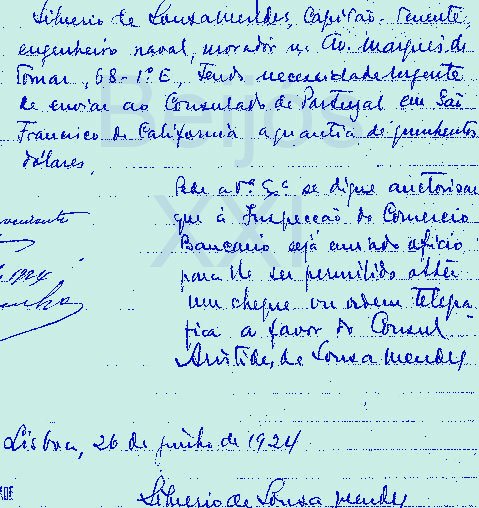 Silverio de Sousa Mendes, Capitão-tenente,
engenheiro naval, morador na Av. Marquês de
Tomar, 68-1º E, Tendo necessidade urgente
de enviar ao Consulado de Portugal em São
Francisco de California a quantia de quinhentos
dólares,
Pede a V.ª Ex.ª se digne auctorisar
que á Inspecção do Comercio
Bancario seja enviado oficio
para lhe ser permitido obter
um cheque ou ordem telegra
fica a favor do Consul
Aristides de Sousa Mendes
Lisboa, 26 de junho de 1924
Silverio de Sousa Mendes
Beijos
XXI